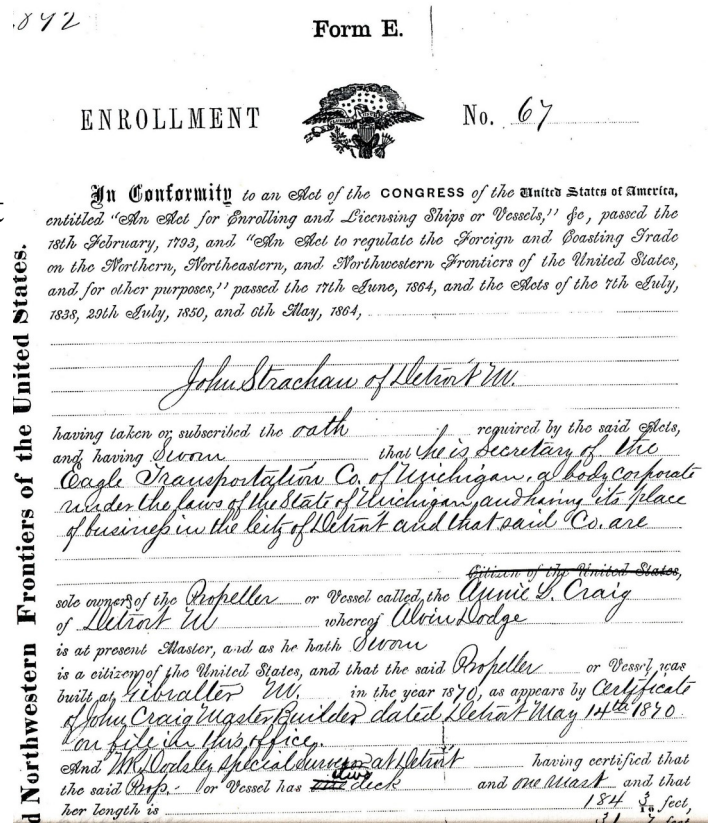 892
Form E.
ENROLLMENT No. 67
In Conformity to an Act of the CONGRESS of the United States of America,
entitled "An Act for Enrolling and Licensing Ships or Vessels," &c, passed the
18th February, 1793, and "An Act to regulate the Foreign and Coasting Trade
on the Northern, Northeastern, and Northwestern Frontiers of the United States,
and for other purposes," passed the 17th June, 1864, and the Acts of the 7th July,
1838, 29th July, 1850, and 6th May, 1864,
John Strachan of Detroit M.
having taken or subscribed the oath required by the said Acts,
and having Sworn that he is Secretary of the
Eagle Transportation Co. of Michigan, a body corporate
under the laws of the State of Michigan, and having its place
of business in the city of Detroit and that said Co. are
Citizen of the United States,
sole owners of the Propeller or Vessel called the Annie L. Craig
of Detroit M whereof Alvin Dodge
is at present Master, and as he hath Sworn
is a citizen of the United States, and that the said Propeller or Vessel was
built at Gibralter M. in the year 1870, as appears by Certificate
of John Craig Master Builder dated Detroit May 14th 1870
on file in this office.
And special surveyor at Detroit having certified that
the said Prop. or Vessel has two deck and one mast and that
her length is 184 3/10 feet,
d Northwestern Frontiers of the United States.